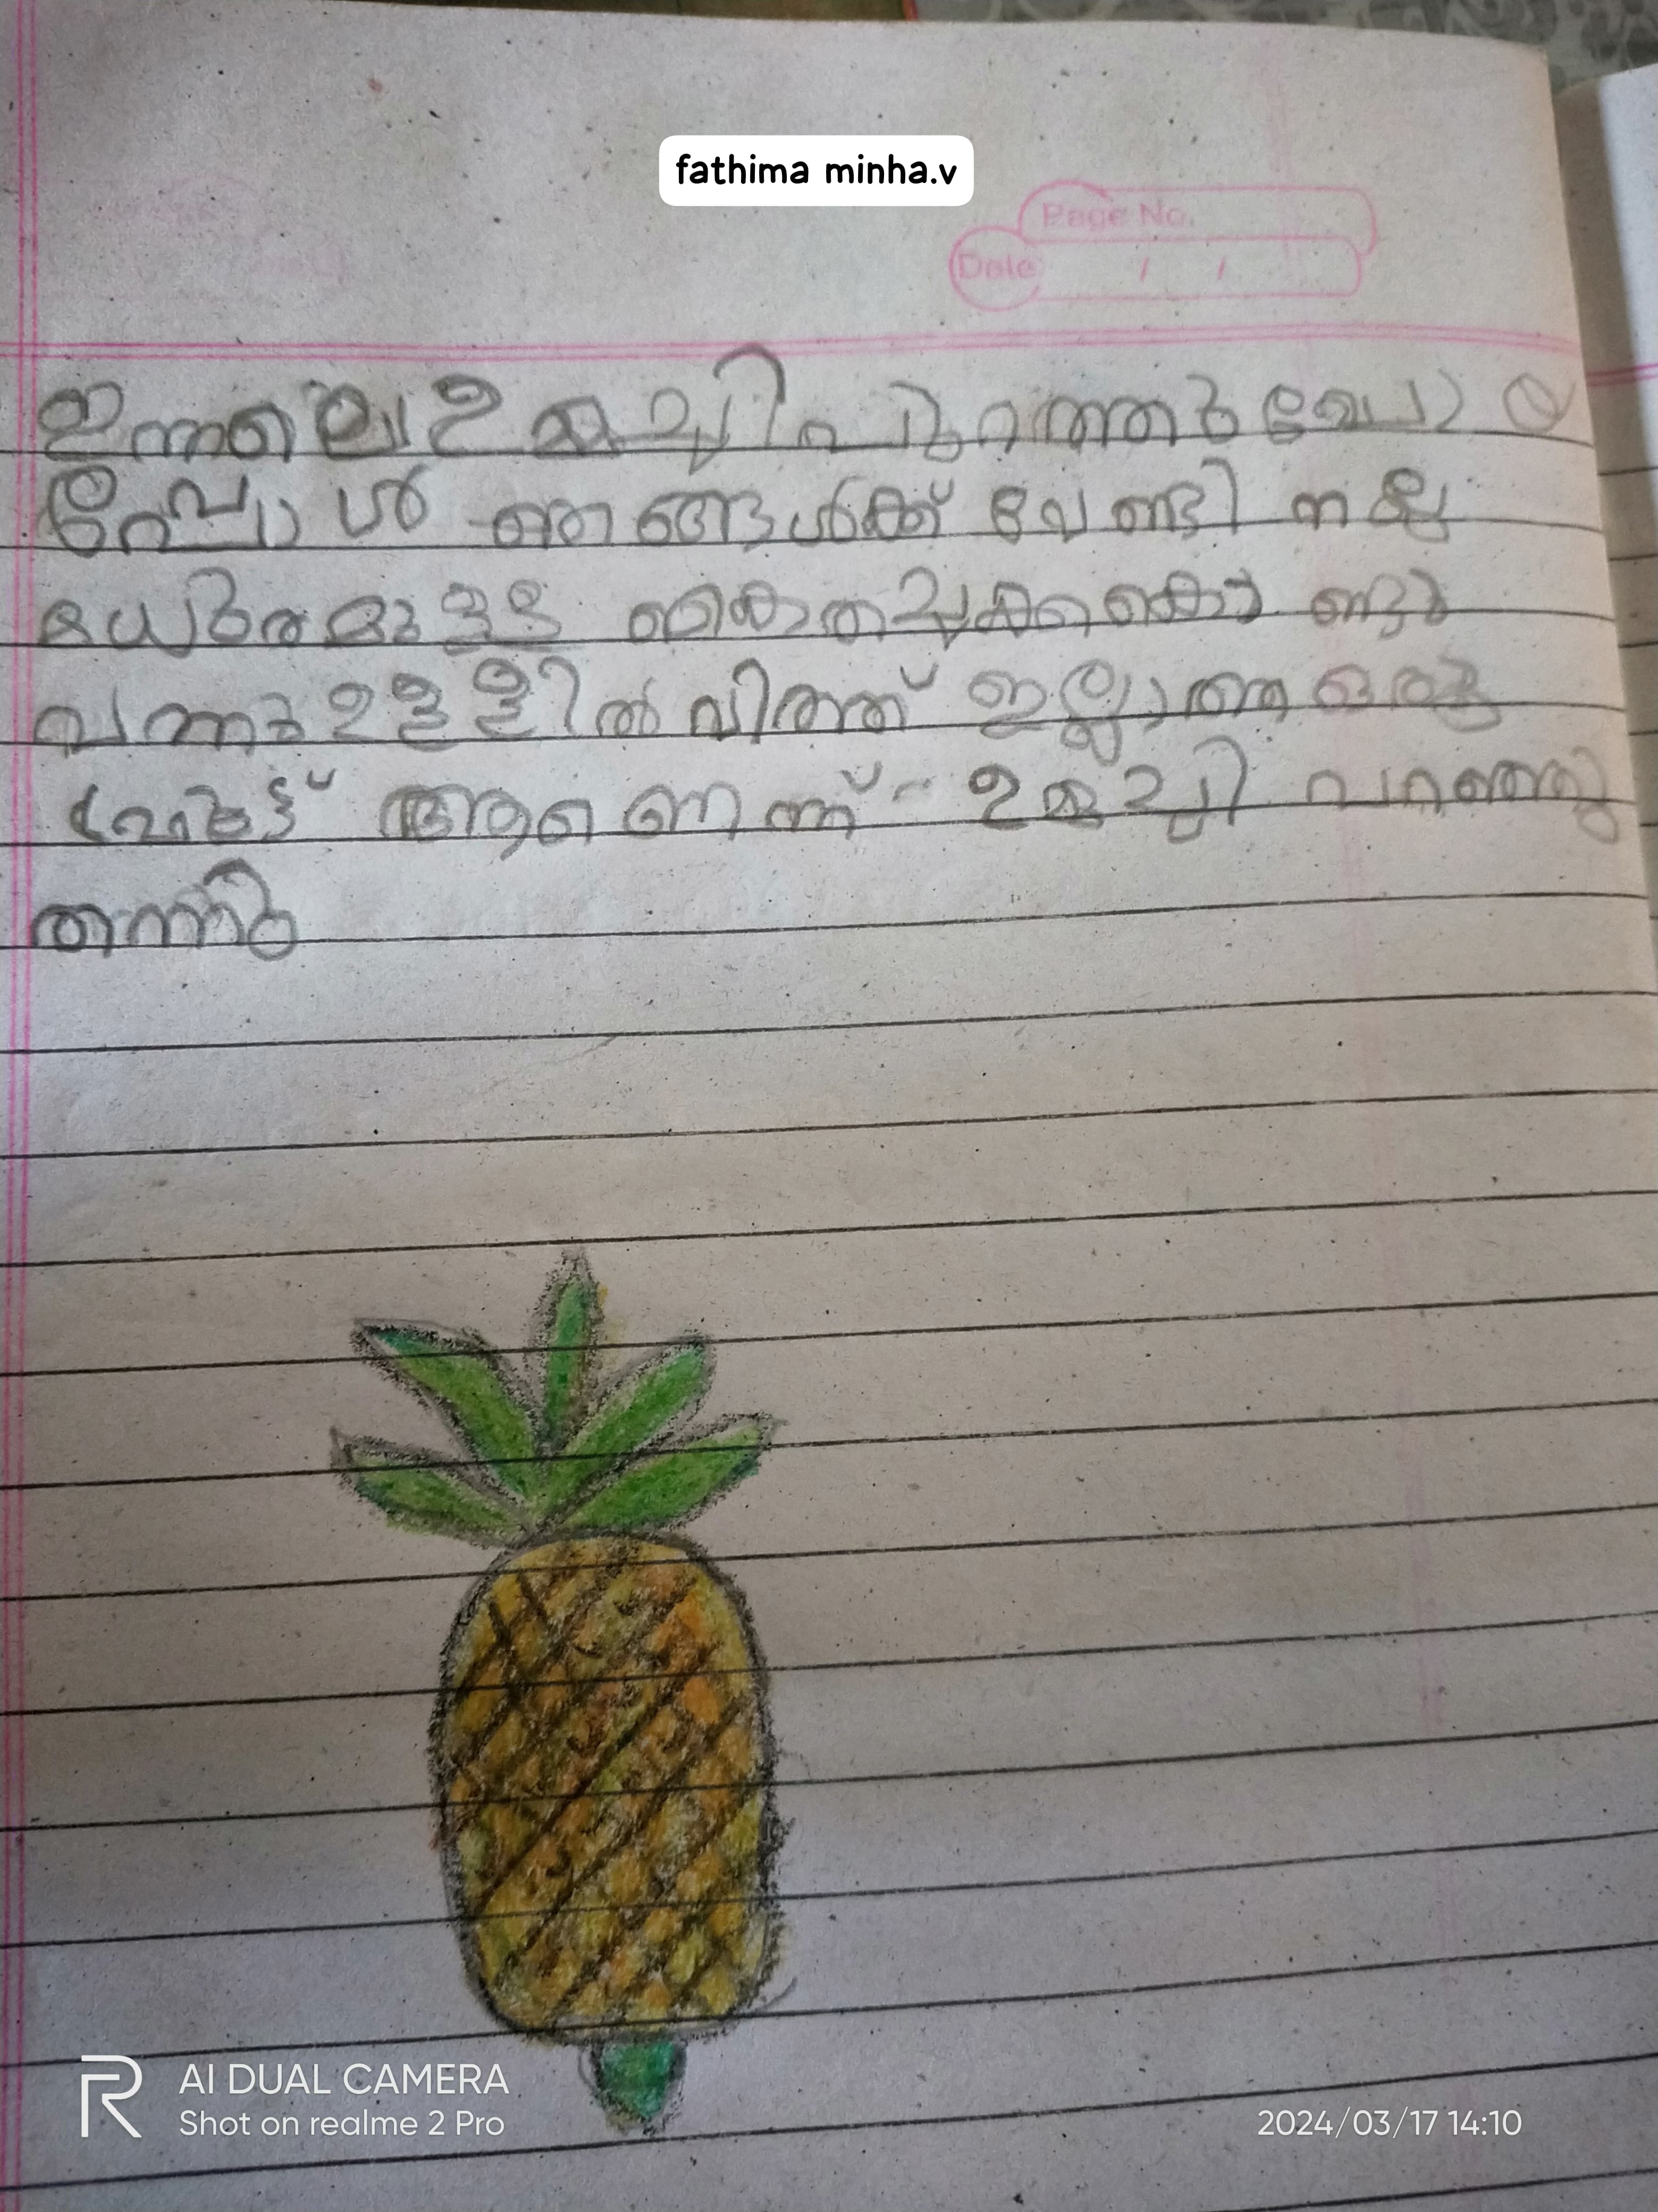 fathima minha.v
Page No.
Date / /
ഇന്നലെ ഉമ്മച്ചി പുറത്തു പോയ
പ്പോൾ ഞങ്ങൾക്ക് വേണ്ടി നല്ല
മധുരമുള്ള കൈതച്ചക്ക കൊണ്ടു
വന്നു ഉള്ളിൽ വിത്ത് ഇല്ലാത്ത ഒരു
ഫ്രൂട്ട് ആണെന്ന് ഉമ്മച്ചി പറഞ്ഞു
തന്നു
R AI DUAL CAMERA
Shot on realme 2 Pro
2024/03/17 14:10